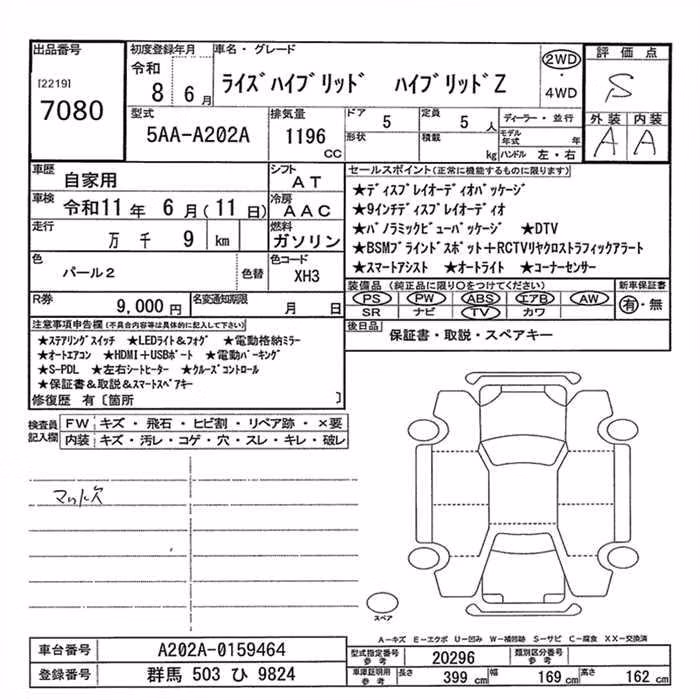 出品番号
[2219]
7080
初度登録年月
令和
8 6月
車名・グレード
ライズハイブリッド ハイブリッドZ
2WD
・
4WD
評価点
S
外装 内装
A A
型式
5AA-A202A
排気量
1196
CC
ドア
5
形状
定員
5人
積載
kg
ディーラー・並行
モデル年式 年
ハンドル 左・右
車歴
自家用
シフト
AT
車検
令和11年 6月(11日)
冷房
AAC
走行
万 千 9 km
燃料
ガソリン
色
パール2
色替
色コード
XH3
セールスポイント(正常に機能するものに限ります)
★ディスプレイオーディオパッケージ
★9インチディスプレイオーディオ
★パノラミックビューパッケージ ★DTV
★BSMブラインドスポット+RCTVリヤクロストラフィックアラート
★スマートアシスト ★オートライト ★コーナーセンサー
装備品(純正品に限り〇をつけてください)
PS PW ABS エアB AW
SR ナビ TV カワ
新車保証書
有・無
R券
9,000円
名変通知期限
月 日
後日品
保証書・取説・スペアキー
注意事項申告欄(不具合内容等は具体的に記入して下さい)
★ステアリングスイッチ ★LEDライト&フォグ ★電動格納ミラー
★オートエアコン ★HDMI+USBポート ★電動パーキング
★S-PDL ★左右シートヒーター ★クルーズコントロール
★保証書&取説&スマートスペアキー
修復歴 有〔箇所 〕
検査員記入欄
FW キズ・飛石・ヒビ割・リペア跡・×要
内装 キズ・汚レ・コゲ・穴・スレ・キレ・破レ
マット欠
スペア
A－キズ E－エクボ U－凹み W－補修跡 S－サビ C－腐食 XX－交換済
車台番号
A202A-0159464
登録番号
群馬 503 ひ 9824
型式指定番号
参考
20296
類別区分番号
参考
車庫証明用
参考
長さ 399cm
幅 169cm
高さ 162cm